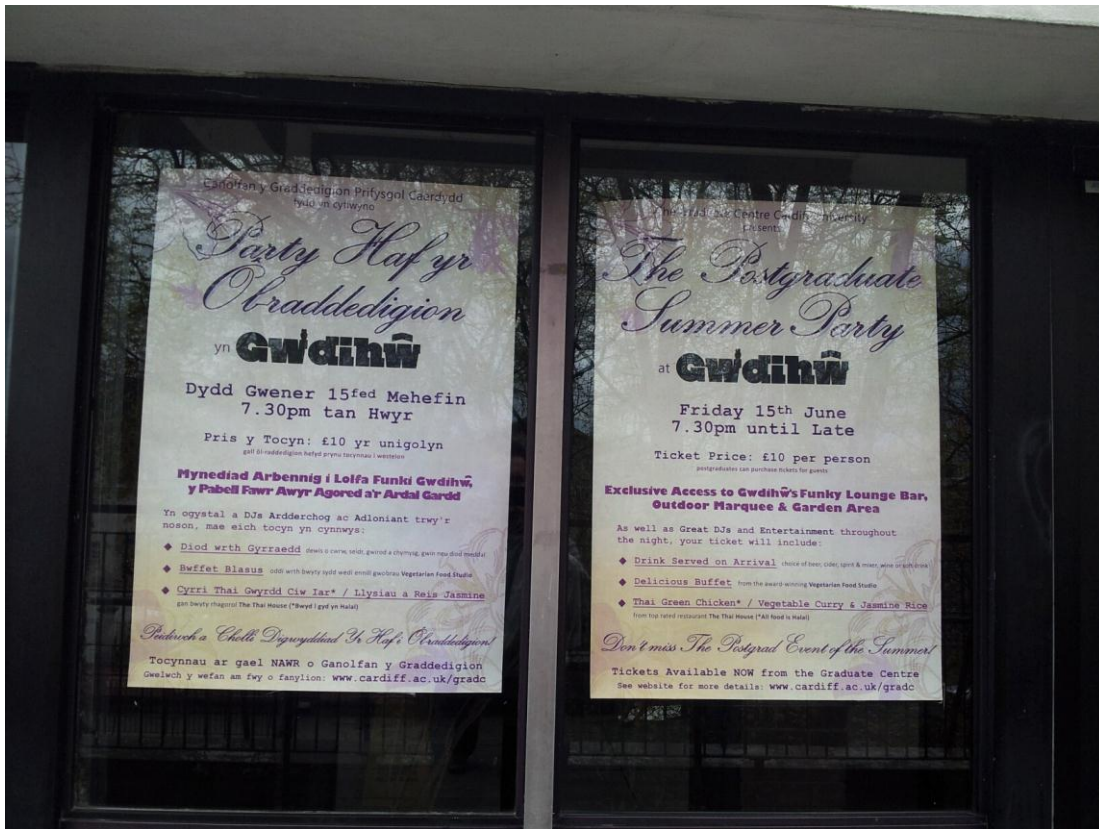 Canolfan y Graddedigion Prifysgol Caerdydd
fydd yn cyflwyno
Party Haf yr
Obraddedigion
yn Gwdihŵ
Dydd Gwener 15fed Mehefin
7.30pm tan Hwyr
Pris y Tocyn: £10 yr unigolyn
gall ôl-raddedigion hefyd prynu tocynnau i westeion
Mynediad Arbennig i Lolfa Funki Gwdihŵ,
y Pabell Fawr Awyr Agored a'r Ardal Gardd
Yn ogystal a DJs Ardderchog ac Adloniant trwy'r
noson, mae eich tocyn yn cynnwys:
Diod wrth Gyrraedd dewis o cwrw, seidr, gwirod a chymysg, gwin neu diod meddal
Bwffet Blasus oddi wrth bwyty sydd wedi ennill gwobrau Vegetarian Food Studio
Cyrri Thai Gwyrdd Ciw Iar* / Llysiau a Reis Jasmine
gan bwyty rhagorol The Thai House (*Bwyd i gyd yn Halal)
Peidiwch a Cholli Digwyddiad Yr Haf i Obraddedigion!
Tocynnau ar gael NAWR o Ganolfan y Graddedigion
Gwelwch y wefan am fwy o fanylion: www.cardiff.ac.uk/gradc
The Graduate Centre Cardiff University
presents
The Postgraduate
Summer Party
at Gwdihŵ
Friday 15th June
7.30pm until Late
Ticket Price: £10 per person
postgraduates can purchase tickets for guests
Exclusive Access to Gwdihŵ's Funky Lounge Bar,
Outdoor Marquee & Garden Area
As well as Great DJs and Entertainment throughout
the night, your ticket will include:
Drink Served on Arrival choice of beer, cider, spirit & mixer, wine or soft drink
Delicious Buffet from the award-winning Vegetarian Food Studio
Thai Green Chicken* / Vegetable Curry & Jasmine Rice
from top rated restaurant The Thai House (*All food is Halal)
Don't miss The Postgrad Event of the Summer!
Tickets Available NOW from the Graduate Centre
See website for more details: www.cardiff.ac.uk/gradc